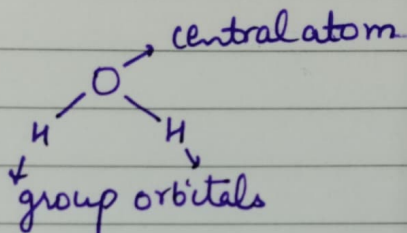 central atom
O
H H
group orbitals